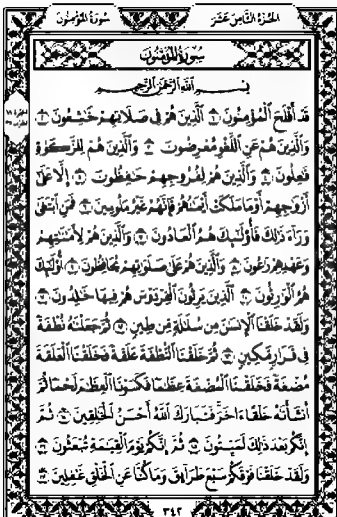 الجزء الثامن عشر سورة المؤمنون
سورة المؤمنون
بسم الله الرحمن الرحيم
قَدْ أَفْلَحَ الْمُؤْمِنُونَ ۝ الَّذِينَ هُمْ فِي صَلَاتِهِمْ خَاشِعُونَ ۝
وَالَّذِينَ هُمْ عَنِ اللَّغْوِ مُعْرِضُونَ ۝ وَالَّذِينَ هُمْ لِلزَّكَوٰةِ
فَٰعِلُونَ ۝ وَالَّذِينَ هُمْ لِفُرُوجِهِمْ حَٰفِظُونَ ۝ إِلَّا عَلَىٰ
أَزْوَٰجِهِمْ أَوْ مَا مَلَكَتْ أَيْمَٰنُهُمْ فَإِنَّهُمْ غَيْرُ مَلُومِينَ ۝ فَمَنِ ابْتَغَىٰ
وَرَآءَ ذَٰلِكَ فَأُولَٰٓئِكَ هُمُ الْعَادُونَ ۝ وَالَّذِينَ هُمْ لِأَمَٰنَٰتِهِمْ
وَعَهْدِهِمْ رَٰعُونَ ۝ وَالَّذِينَ هُمْ عَلَىٰ صَلَوَٰتِهِمْ يُحَافِظُونَ ۝ أُولَٰٓئِكَ
هُمُ الْوَٰرِثُونَ ۝ الَّذِينَ يَرِثُونَ الْفِرْدَوْسَ هُمْ فِيهَا خَٰلِدُونَ ۝
وَلَقَدْ خَلَقْنَا الْإِنسَٰنَ مِن سُلَٰلَةٍ مِّن طِينٍ ۝ ثُمَّ جَعَلْنَٰهُ نُطْفَةً
فِي قَرَارٍ مَّكِينٍ ۝ ثُمَّ خَلَقْنَا النُّطْفَةَ عَلَقَةً فَخَلَقْنَا الْعَلَقَةَ
مُضْغَةً فَخَلَقْنَا الْمُضْغَةَ عِظَٰمًا فَكَسَوْنَا الْعِظَٰمَ لَحْمًا ثُمَّ
أَنشَأْنَٰهُ خَلْقًا ءَاخَرَ فَتَبَارَكَ اللَّهُ أَحْسَنُ الْخَٰلِقِينَ ۝ ثُمَّ
إِنَّكُم بَعْدَ ذَٰلِكَ لَمَيِّتُونَ ۝ ثُمَّ إِنَّكُمْ يَوْمَ الْقِيَٰمَةِ تُبْعَثُونَ ۝
وَلَقَدْ خَلَقْنَا فَوْقَكُمْ سَبْعَ طَرَآئِقَ وَمَا كُنَّا عَنِ الْخَلْقِ غَٰفِلِينَ ۝
٣٤٢